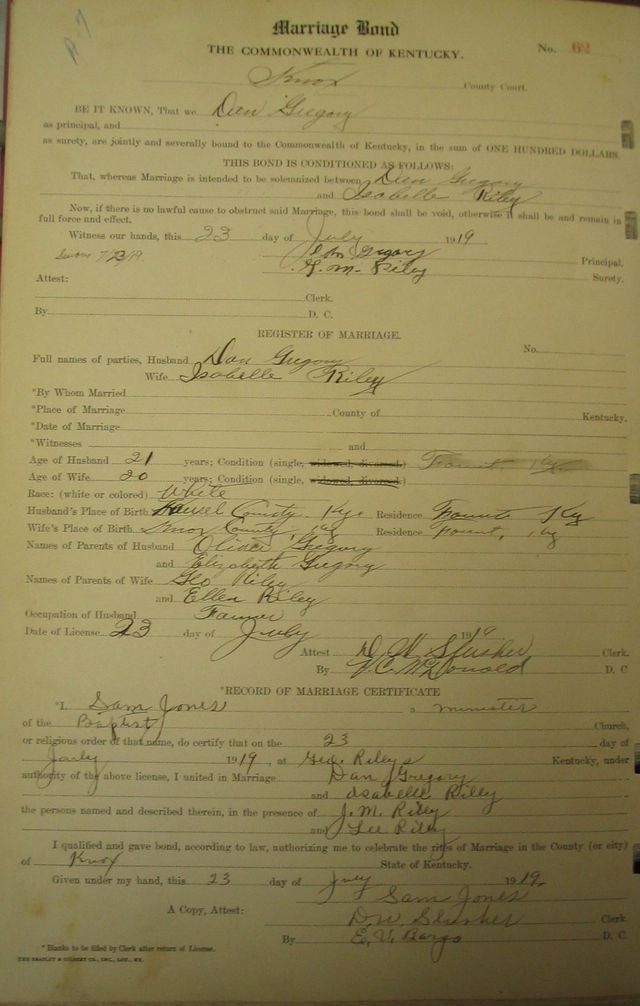 P-7
Marriage Bond
THE COMMONWEALTH OF KENTUCKY.
No. 62
Knox County Court.
BE IT KNOWN, That we Dan Gregory
as principal, and
as surety, are jointly and severally bound to the Commonwealth of Kentucky, in the sum of ONE HUNDRED DOLLARS.
THIS BOND IS CONDITIONED AS FOLLOWS:
That, whereas Marriage is intended to be solemnized between Dan Gregory
and Isabelle Riley
Now, if there is no lawful cause to obstruct said Marriage, this bond shall be void, otherwise it shall be and remain in
full force and effect.
Witness our hands, this 23 day of July 1919
Gregory Principal.
7/23/19. M. Riley Surety.
Attest:
Clerk.
By D. C.
REGISTER OF MARRIAGE.
No.
Full names of parties, Husband Dan Gregory
Wife Isabelle Riley
*By Whom Married
*Place of Marriage County of Kentucky.
*Date of Marriage
*Witnesses and
Age of Husband 21 years; Condition (single, widowed, divorced.)
Age of Wife 20 years; Condition (single, widowed, divorced.)
Race: (white or colored) White
Husband's Place of Birth County Ky. Residence Ky
Wife's Place of Birth Knox County Ky Residence Ky
Names of Parents of Husband Oliver Gregory
and Elizabeth Gregory
Names of Parents of Wife Geo Riley
and Ellen Riley
Occupation of Husband Farmer
Date of License 23 day of July 1919
Attest D. W. Slusher Clerk.
By V.C. McDonald D. C
*RECORD OF MARRIAGE CERTIFICATE
*I, Sam Jones a minister
of the Baptist Church,
or religious order of that name, do certify that on the 23 day of
July 1919, at Geo. Rileys Kentucky, under
authority of the above license, I united in Marriage Dan Gregory
and Isabelle Riley
the persons named and described therein, in the presence of J. M. Riley
and Lee Riley
I qualified and gave bond, according to law, authorizing me to celebrate the rites of Marriage in the County (or city)
of Knox State of Kentucky.
Given under my hand, this 23 day of July 1919.
Sam Jones
A Copy, Attest: D.W. Slusher Clerk
By E. V. Bargo D. C.
* Blanks to be filled by Clerk after return of License.
THE BRADLEY & GILBERT CO., INC., LOU., KY.